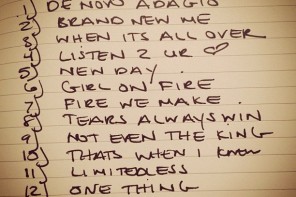 1) DE NOVO ADAGIO
2) BRAND NEW ME
3) WHEN ITS ALL OVER
4) LISTEN 2 UR ♡
5) NEW DAY
6) GIRL ON FIRE
7) FIRE WE MAKE
8) TEARS ALWAYS WIN
9) NOT EVEN THE KING
10) THATS WHEN I KNEW
11) LIMITEDLESS
12) ONE THING